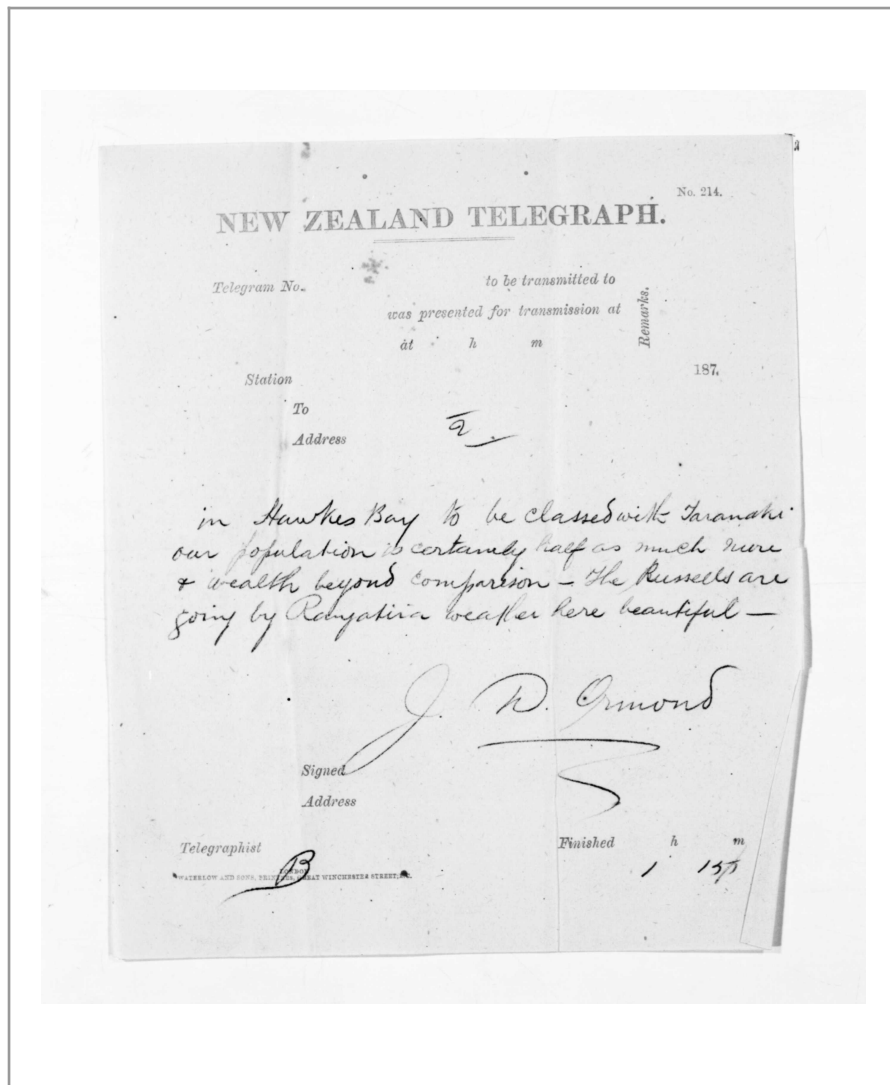 No. 214.
NEW ZEALAND TELEGRAPH.
Telegram No. to be transmitted to
was presented for transmission at
at h m
Remarks.
Station 187,
To
Address 2
in Hawkes Bay to be classed with Taranaki
our population is certainly half as much more
& wealth beyond comparison – The Russells are
going by Rangatira weather here beautiful –
J. D. Ormond
Signed
Address
Telegraphist B
Finished h m
1 15
LONDON
WATERLOW AND SONS, PRINTERS, GREAT WINCHESTER STREET,